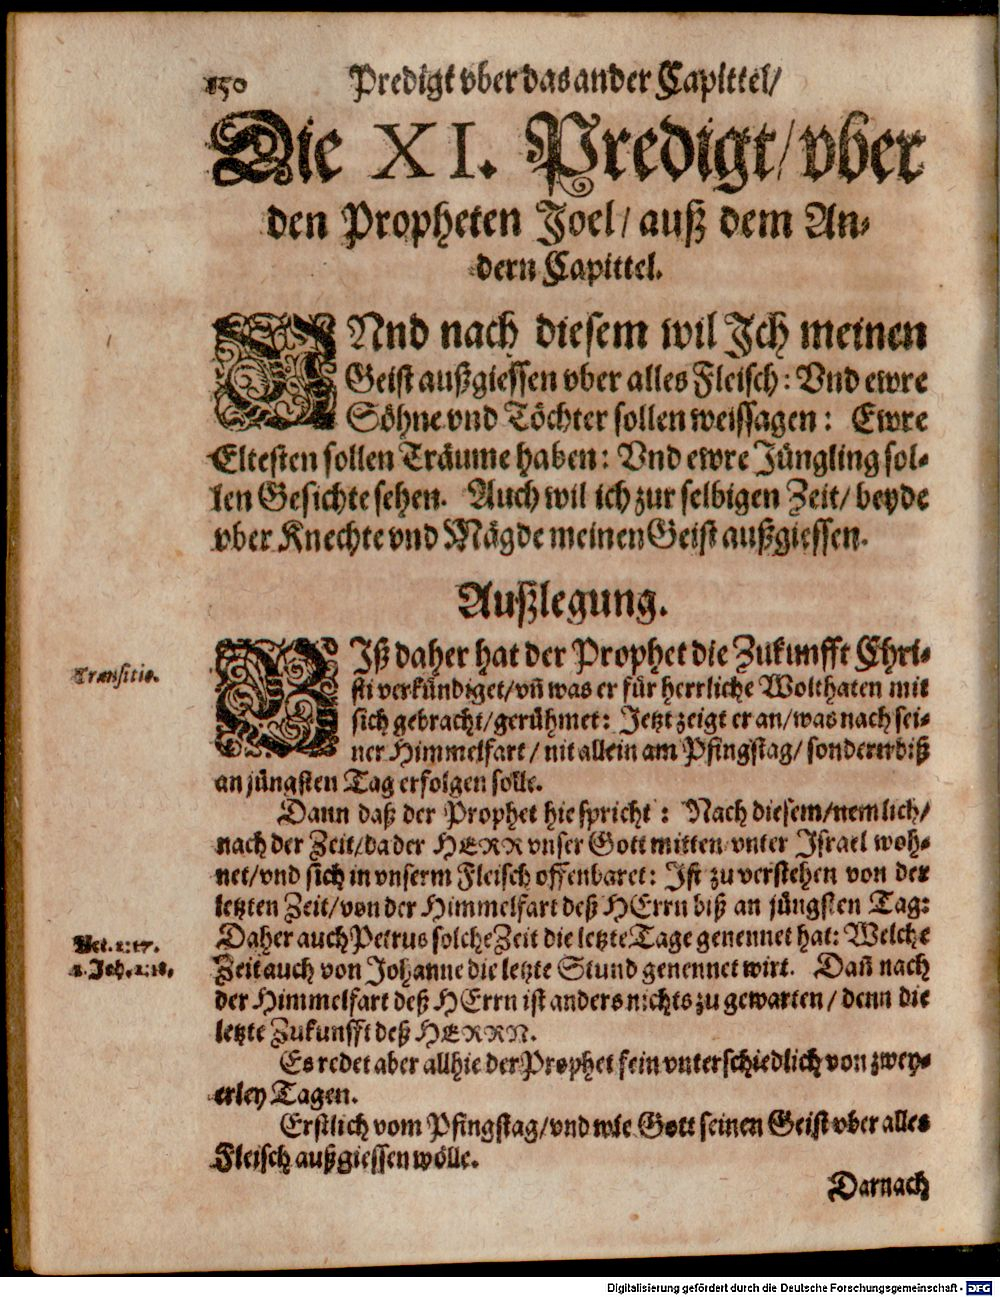 150 Predigt vber das ander Capittel/
Die XI. Predigt/ vber
den Propheten Joel/ auß dem An-
dern Capittel.
VNnd nach diesem wil Ich meinen
Geist außgiessen vber alles Fleisch: Vnd ewre
Söhne vnd Töchter sollen weissagen: Ewre
Eltesten sollen Träume haben: Vnd ewre Jüngling sol-
len Gesichte sehen. Auch wil ich zur selbigen Zeit/ beyde
vber Knechte vnd Mägde meinen Geist außgiessen.
Außlegung.
BIß daher hat der Prophet die Zukunfft Chri-
Transitio.
sti verkündiget/ vñ was er für herrliche Wolthaten mit
sich gebracht/ gerühmet: Jetzt zeigt er an/ was nach sei-
ner Himmelfart/ nit allein am Pfingstag/ sondern biß
an jüngsten Tag erfolgen solle.
Dann daß der Prophet hie spricht: Nach diesem/ nemlich/
nach der Zeit/ da der HERR vnser Gott mitten vnter Israel woh-
net/ vnd sich in vnserm Fleisch offenbaret: Ist zu verstehen von der
letzten Zeit/ von der Himmelfart deß HErrn biß an jüngsten Tag:
Daher auch Petrus solche Zeit die letzte Tage genennet hat: Welche
Act. 2:17.
Zeit auch von Johanne die letzte Stund genennet wirt. Dañ nach
1. Joh. 2:18.
der Himmelfart deß HErrn ist anders nichts zu gewarten/ denn die
letzte Zukunfft deß HERRN.
Es redet aber allhie der Prophet fein vnterschiedlich von zwey-
erley Tagen.
Erstlich vom Pfingstag/ vnd wie Gott seinen Geist vber alles
Fleisch außgiessen wölle.
Darnach
Digitalisierung gefördert durch die Deutsche Forschungsgemeinschaft - DFG